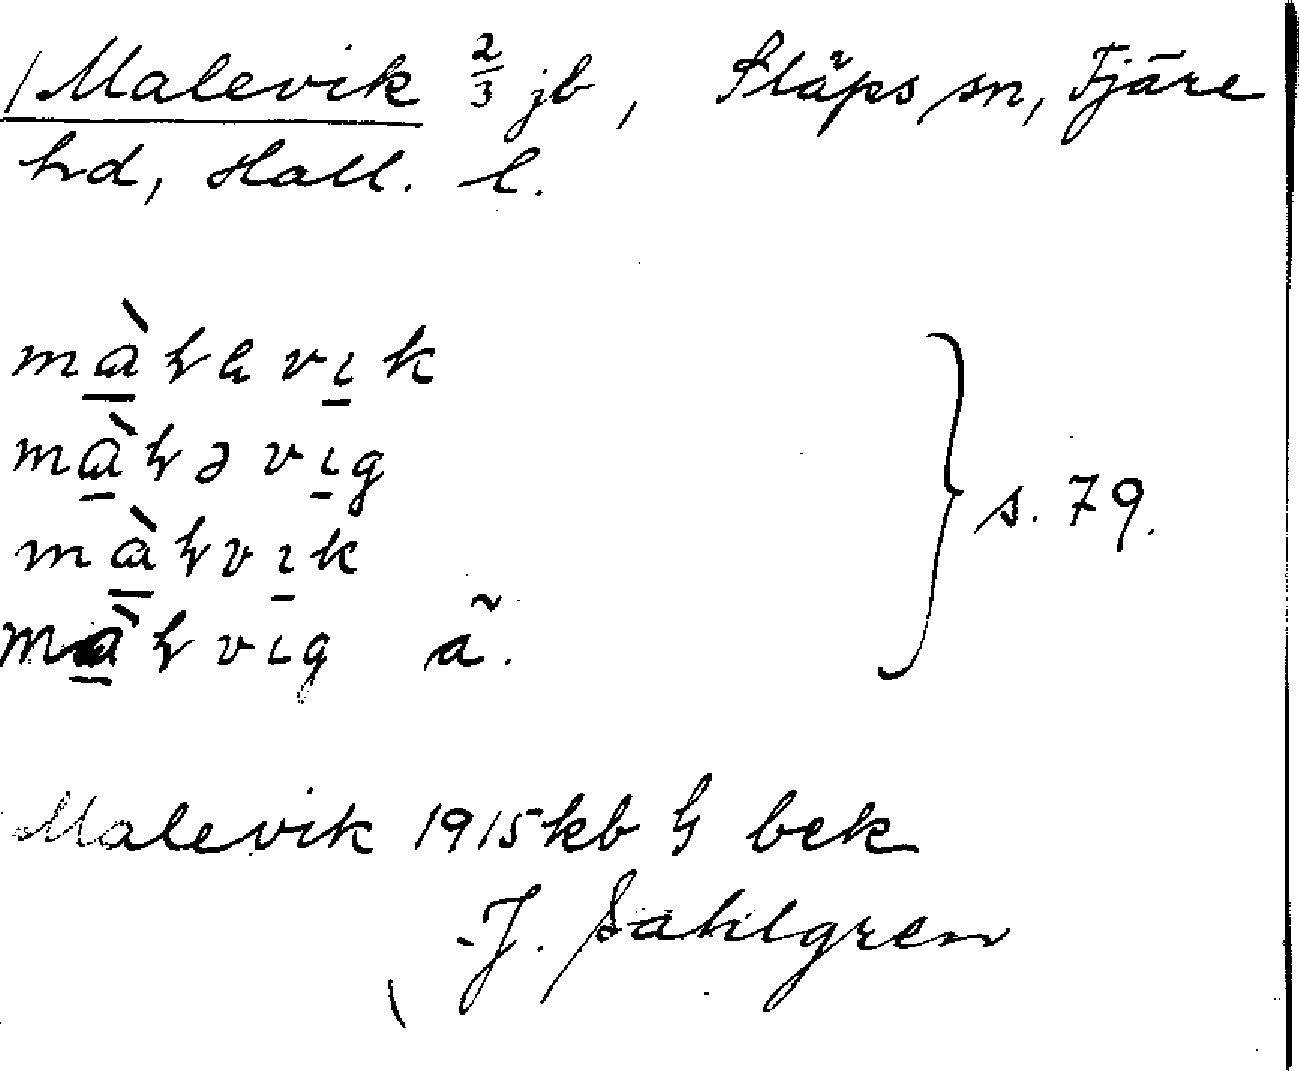 Malevik 2/3 jb, Släps sn, Fjäre
hd, Hall. l.
màɫavik
màɫəvig
màɫvik
màɫvig ã.
s. 79.
Malevik 1915 kb G bek
J. Sahlgren